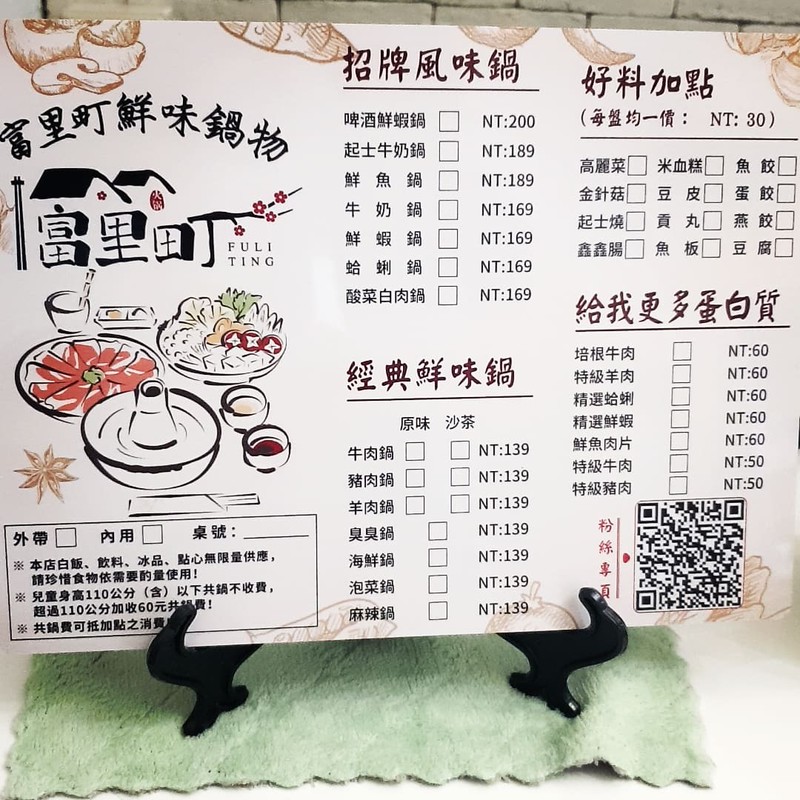 富里町鮮味鍋物
火鍋
富里町
FULI
TING
外帶□ 內用□ 桌號：
※ 本店白飯、飲料、冰品、點心無限量供應，
請珍惜食物依需要酌量使用！
※ 兒童身高110公分（含）以下共鍋不收費，
超過110公分加收60元共鍋費！
※ 共鍋費可抵加點之消費
招牌風味鍋
啤酒鮮蝦鍋 □ NT:200
起士牛奶鍋 □ NT:189
鮮魚鍋 □ NT:189
牛奶鍋 □ NT:169
鮮蝦鍋 □ NT:169
蛤蜊鍋 □ NT:169
酸菜白肉鍋 □ NT:169
經典鮮味鍋
原味 沙茶
牛肉鍋 □ □ NT:139
豬肉鍋 □ □ NT:139
羊肉鍋 □ □ NT:139
臭臭鍋 □ NT:139
海鮮鍋 □ NT:139
泡菜鍋 □ NT:139
麻辣鍋 □ NT:139
好料加點
（每盤均一價： NT: 30）
高麗菜□ 米血糕□ 魚餃□
金針菇□ 豆皮□ 蛋餃□
起士燒□ 貢丸□ 燕餃□
鑫鑫腸□ 魚板□ 豆腐□
給我更多蛋白質
培根牛肉 □ NT:60
特級羊肉 □ NT:60
精選蛤蜊 □ NT:60
精選鮮蝦 □ NT:60
鮮魚肉片 □ NT:60
特級牛肉 □ NT:50
特級豬肉 □ NT:50
粉絲專頁